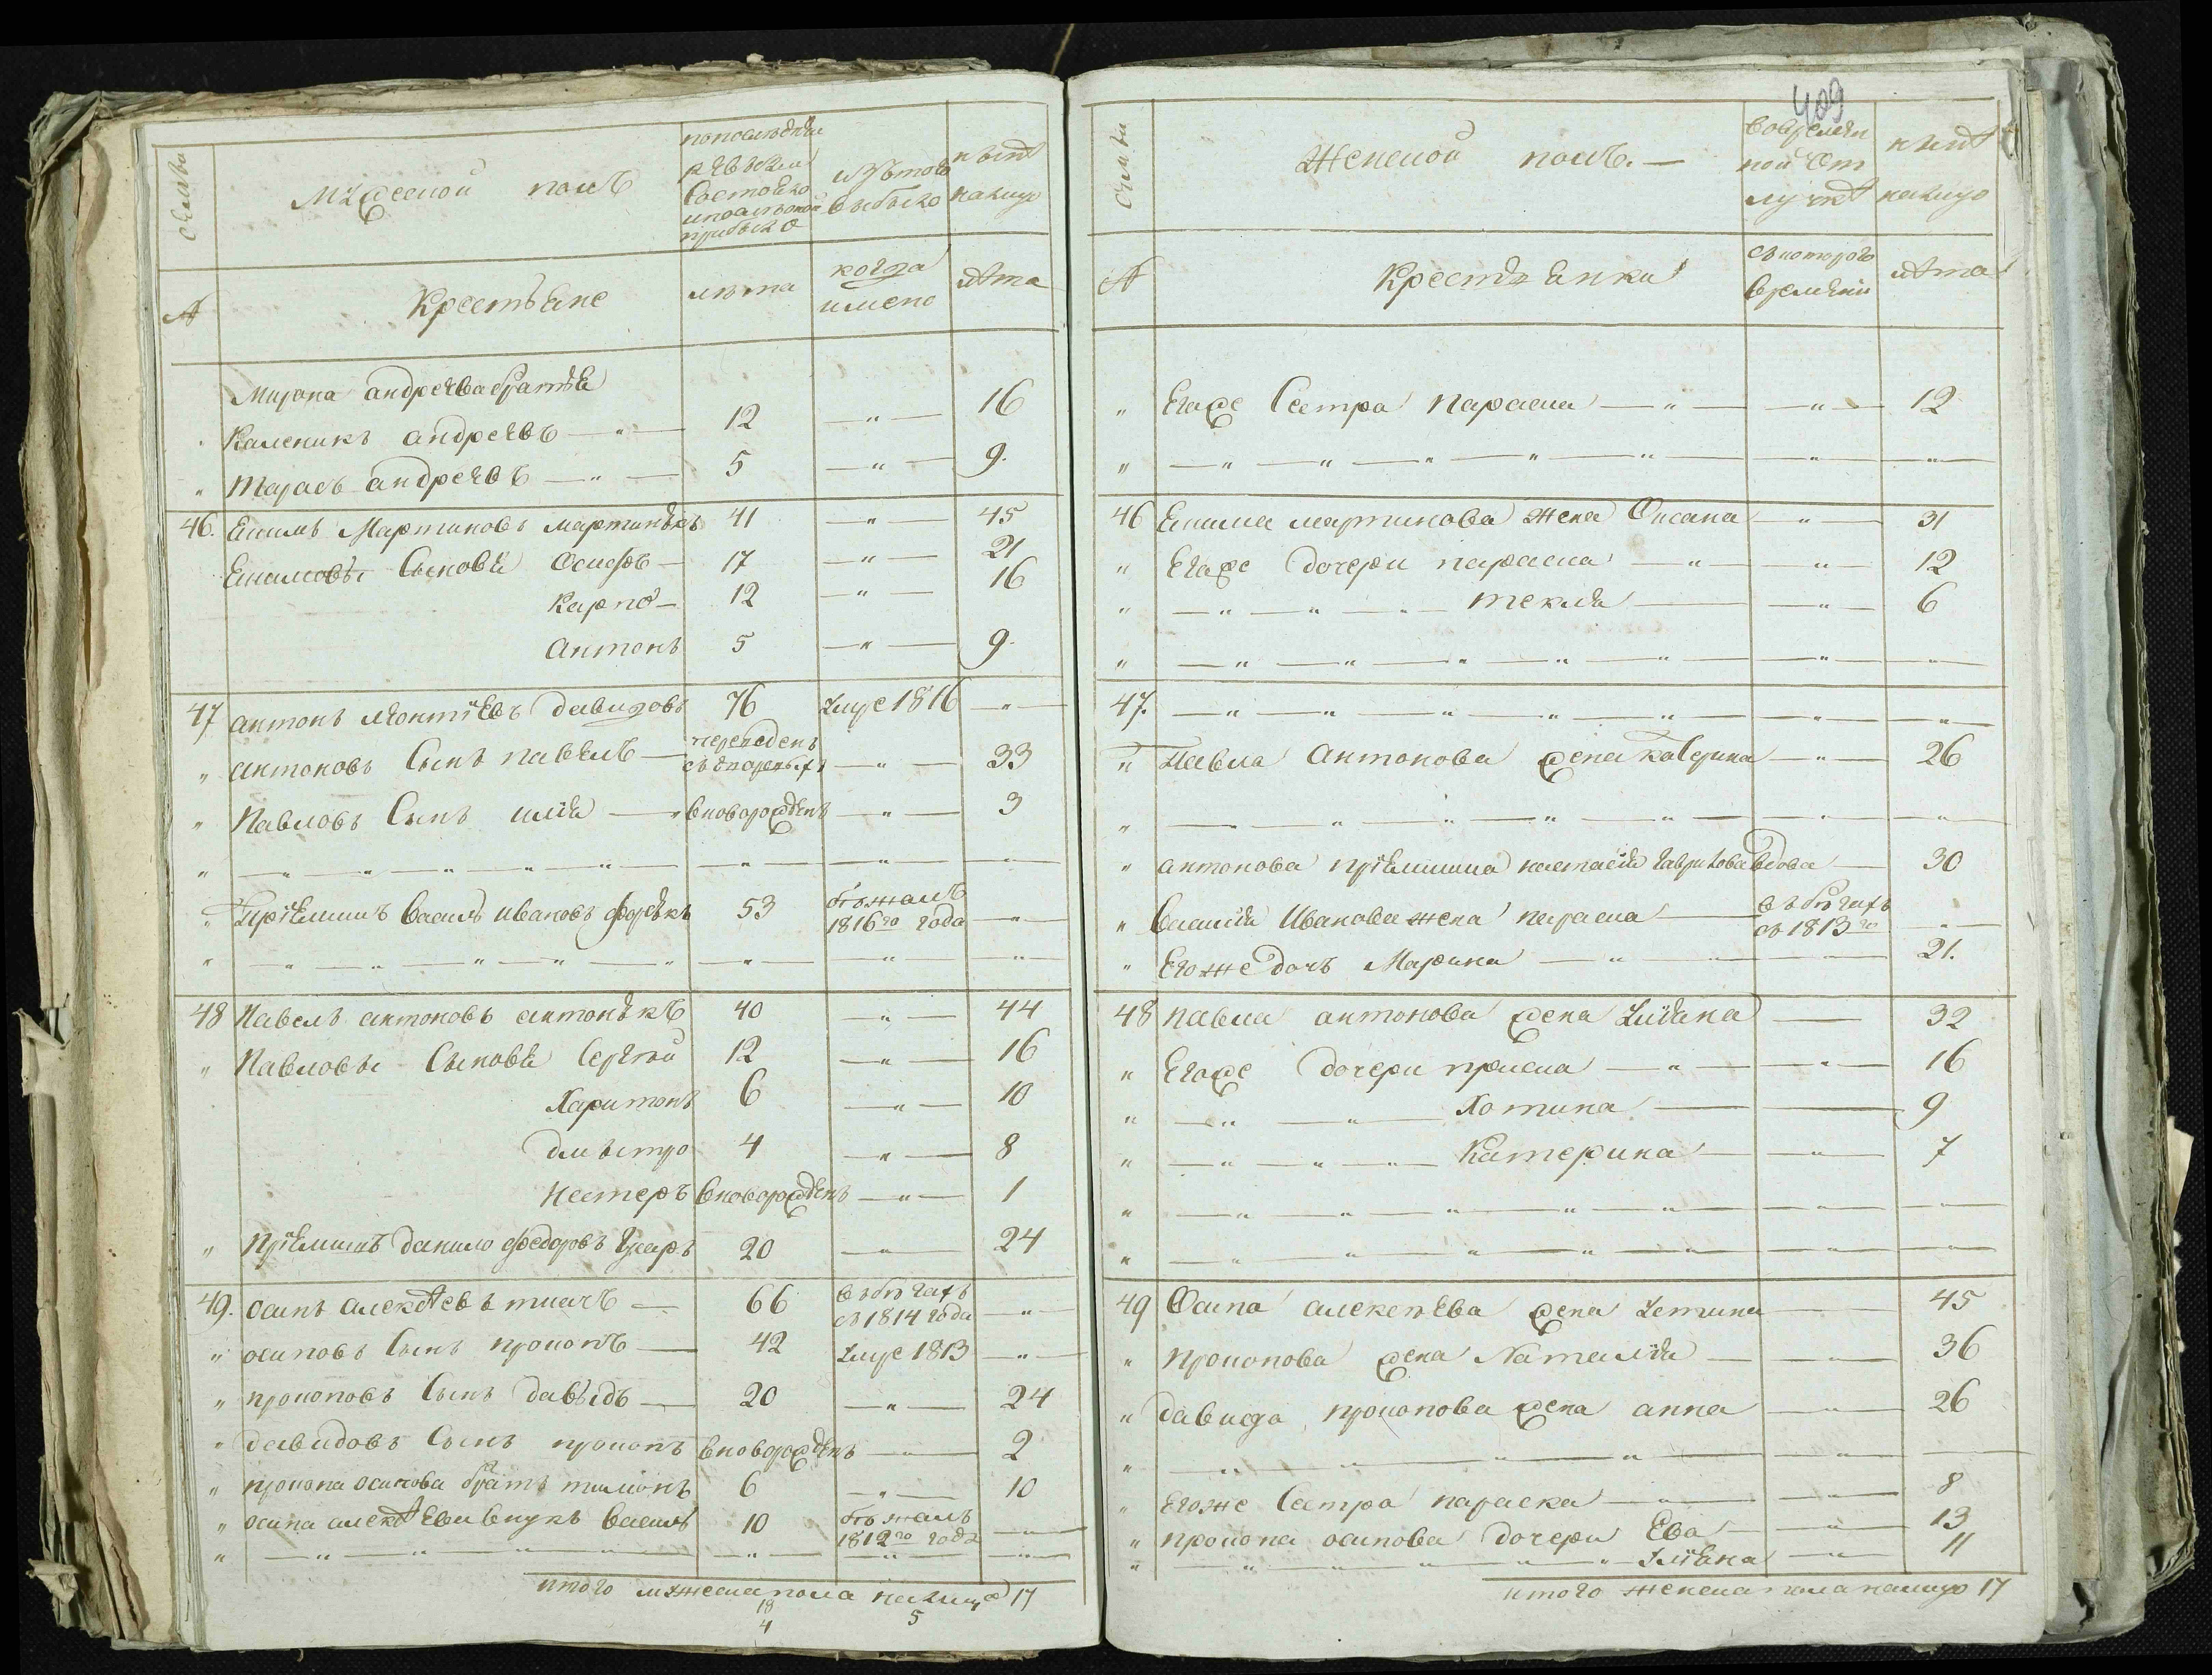 семьи
мужескои полъ
попоследнеи
ревизии
состояло
ипослеоной
прибыло
изътого
выбыло
ныне
налицо
№
Крестьяне
лета
когда
имено
лета
Мирона андреева братья
Каленикъ андреевъ — " — 12 — " — 16
" Тарасъ андреевъ — " — 5 — " — 9.
46. Екимъ Мартиновъ мартинѣкъ 41 — " — 45
Екимовы Сыновя Осифъ — 17 — " — 21
Карпо — 12 — " — 16
Антонъ 5 — " — 9.
47 антонъ леонтіевъ давидовъ 76 умре 1816 — " —
" антоновъ Сынъ павелъ — переведенъ — " — 33
" Павловъ Сынъ илія — " вноворожденъ — " — 3
" — " — " — " — " — " — " — " —
" Пріемишъ Василь ивановъ 53 бежалъ
1816го года — " —
" — " — " — " — " — " — " — " —
48 Павелъ антоновъ антонѣкъ 40 — " — 44
" Павловы Сыновя Сергѣй 12 — " — 16
Харитонъ 6 — " — 10
дмытро 4 — " — 8
Нестеръ вноворожденъ — " — 1
" Пріемишъ данило федоровъ 20 — " — 24
49. осипъ алексѣевъ ткачъ — 66 въбегахъ
съ 1814 года — " —
" осиповъ Сынъ прокопъ — 42 умре 1813 — " —
" прокоповъ Сынъ давыдъ — 20 — " — 24
" давидовъ Сынъ прокопъ вноворожденъ — " — 2
" прокопа осипова братъ тимонъ 6 — " — 10
" осипа алексѣева внукъ василь 10 бежалъ
1812го года — " —
" — " — " — " — " — " — " — " —
итого мужеска пола налицо 17
18
4
5
409
семьи
Женской полъ. —
вовремян
ной от
лучкѣ
ныне
налицо
№
Крестьянки
съкоторого
времяни
лета
" Егоже Сестра Параска — " — — " — 12
" — " — " — " — " — " — " — " —
46 Екима мартинова жена Оксана — " — 31
" Егоже дочери параска — " — — " — 12
" — " — " — " — текля — — " — 6
" — " — " — " — " — " — " — " —
47. — " — " — " — " — " — " — " —
" Павла Антонова жена катерина — " — 26
" — " — " — " — " — " — " — " —
" антонова пріемишка настасія гаврилова вдова — 30
" Василія Иванова жена параска — въбегахъ
съ 1813го — " —
" Егоже дочъ Марина — " — — 21.
48 павла антонова жена Уліяна — 32
" Егоже дочери приска — " — — " — 16
" — " — " — Хотина — — 9
" — " — " — Катерина — — " — 7
" — " — " — " — " — " — " — " —
" — " — " — " — " — " — " — " —
49 Осипа алексѣева жена Устина — 45
" прокопова жена Наталія — — " — 36
" давида прокопова жена анна — " — 26
" — " — " — " — " — " — " —
" Егоже Сестра параска — " — — " — 8
" прокопа осипова дочери Ева — — " — 13
" — " — " — " — " — Уліяна — " — 11
итого женска пола налицо 17